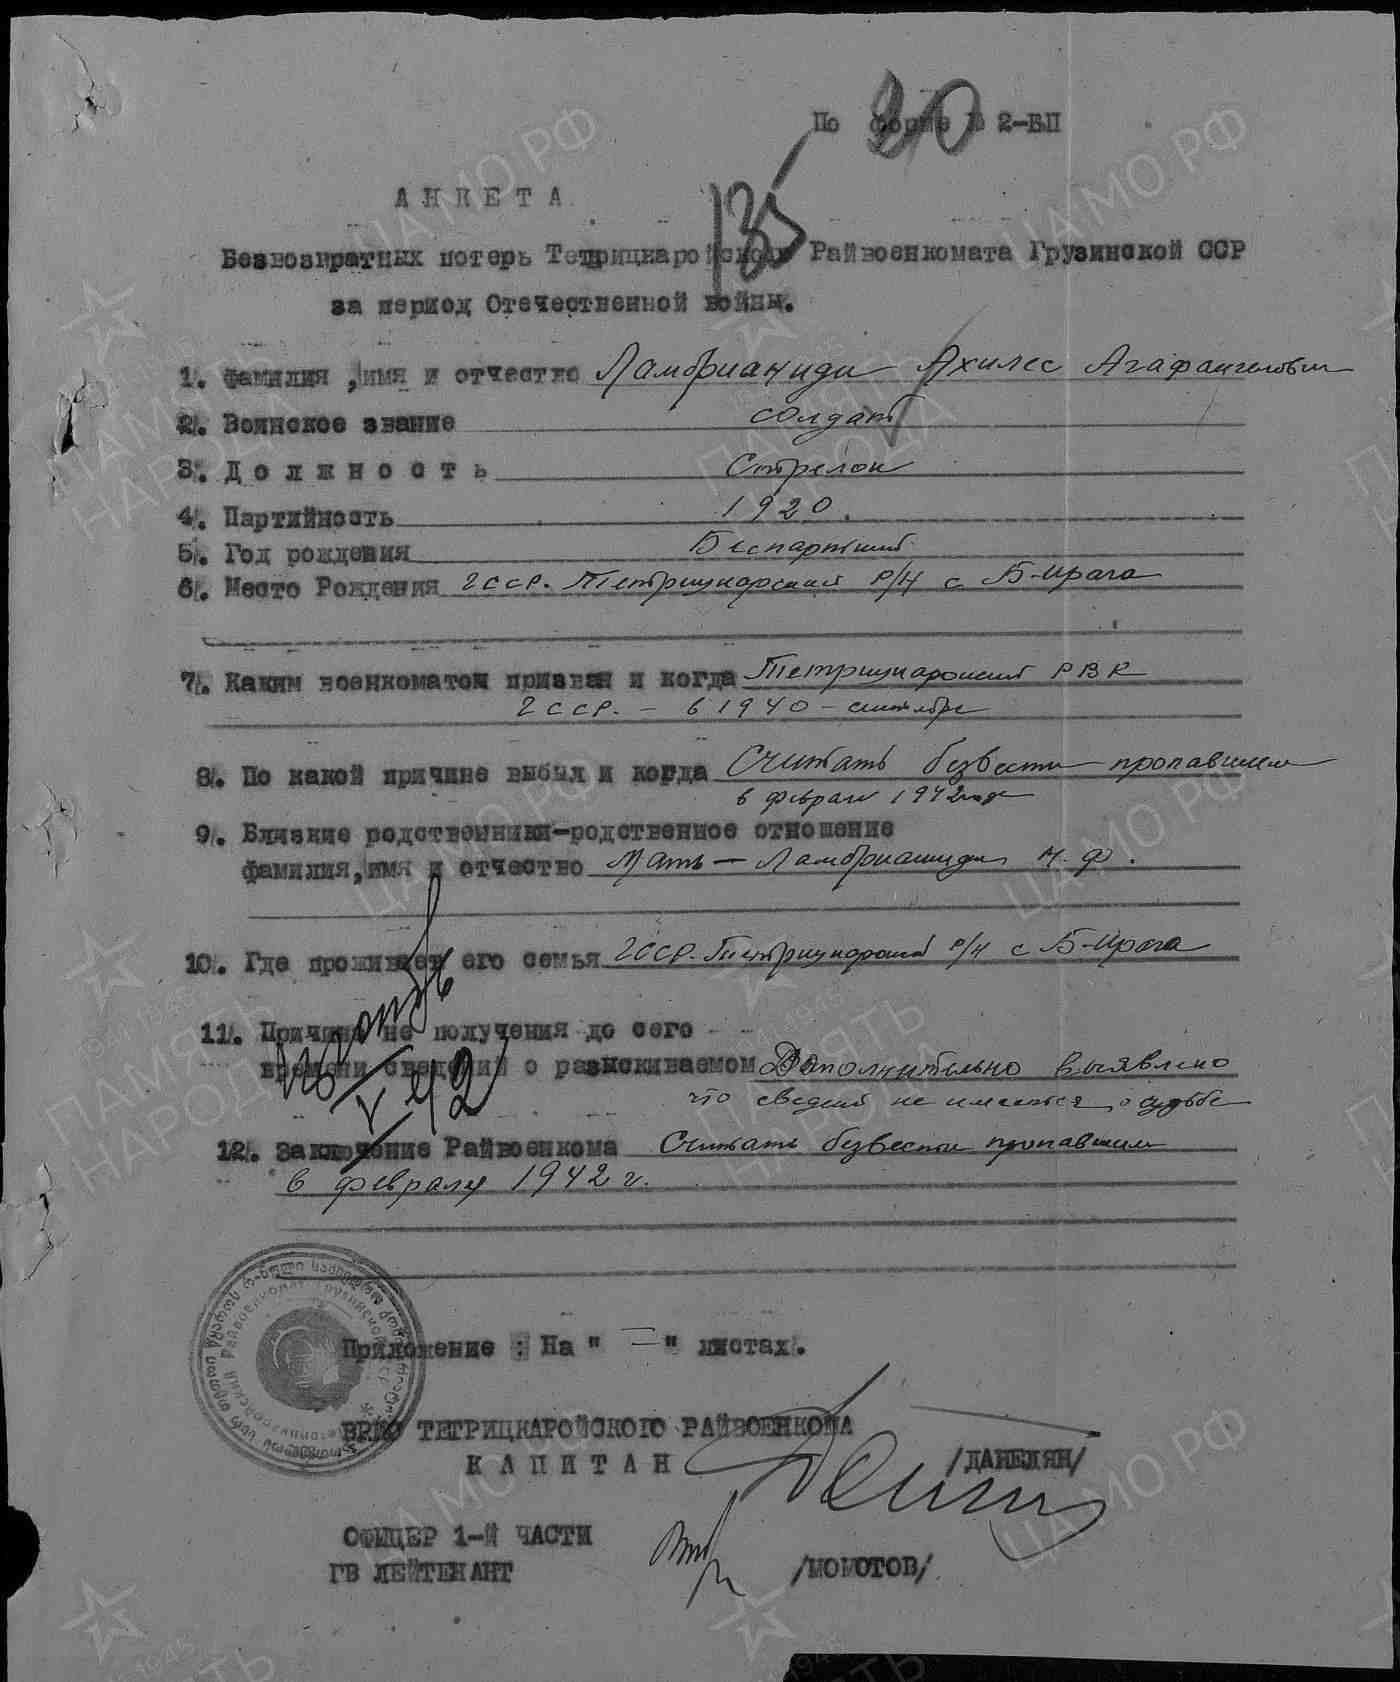 По форме № 2-БП
20
135
АНКЕТА
Безвозвратных потерь Тетрицкаройского Райвоенкомата Грузинской ССР
за период Отечественной войны.
1. Фамилия, имя и отчество Ламбрианиди Ахилес Агафангелович
2. Воинское звание солдат
3. Должность Стрелок
4. Партийность 1920.
5. Год рождения Беспартийный
6. Место Рождения ГССР. Тетрицкаройский р/н с Б-Ирага
7. Каким военкоматом призван и когда Тетрицкаройский РВК
ГССР. - в 1940 - сентябре
8. По какой причине выбыл и когда Считать безвести пропавшим
в феврале 1942 года
9. Близкие родственники-родственное отношение
фамилия, имя и отчество Мать - Ламбрианиди Н. Ф.
10. Где проживает его семья ГССР. Тетрицкаройский р/н с Б-Ирага
11. Причина не получения до сего
времени сведений о разыскиваемом Дополнительно выявлено
что сведений не имеется о судьбе
V 42
12. Заключение Райвоенкома Считать безвести пропавшим
в феврале 1942 г.
Приложение : На " — " листах.
ВРИО ТЕТРИЦКАРОЙСКОГО РАЙВОЕНКОМА
КАПИТАН /ДАНЕЛЯН/
ОФИЦЕР 1-Й ЧАСТИ
ГВ ЛЕЙТЕНАНТ /МОМОТОВ/
ЦАМО РФ
ПАМЯТЬ НАРОДА
1941-1945